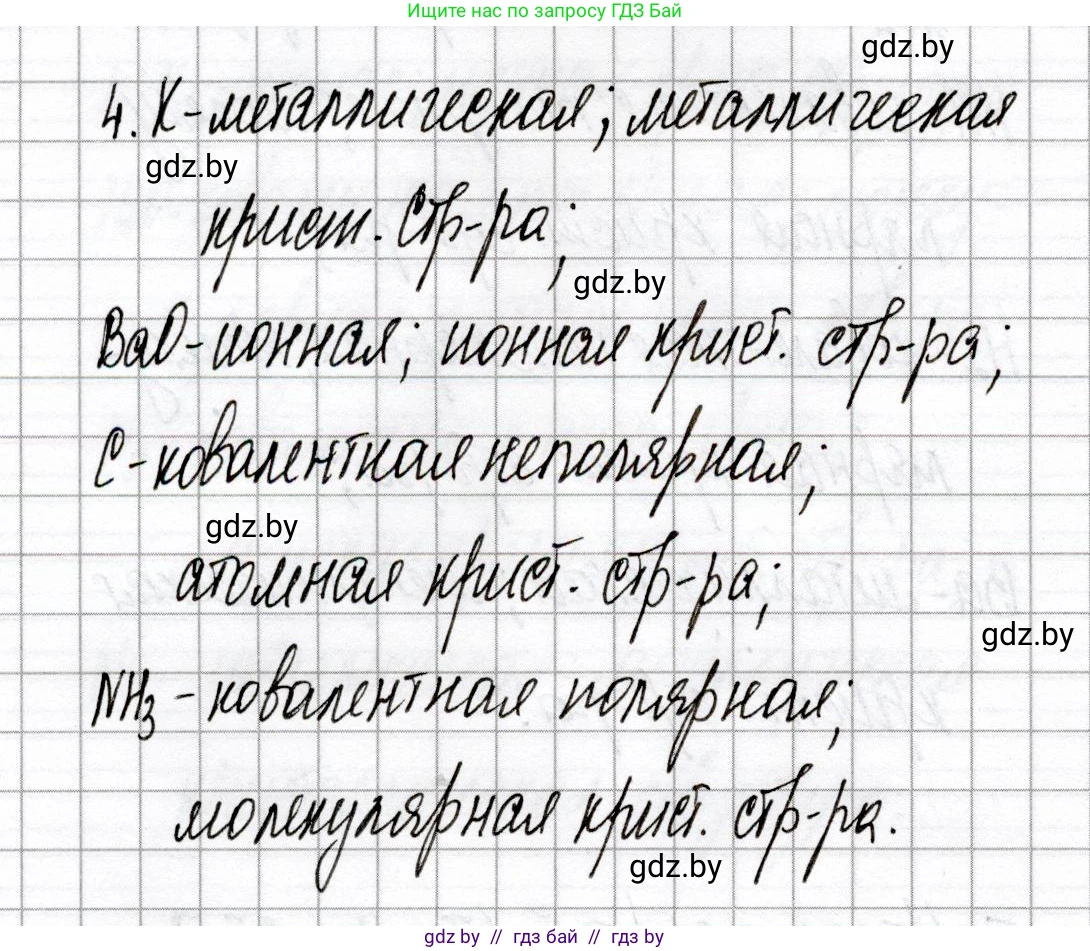 Ищите нас по запросу ГДЗ Бай
gdz.by
4. К-металлическая; металлическая
gdz.by
крист. стр-ра;
gdz.by
BaO-ионная; ионная крист. стр-ра;
С-ковалентная неполярная;
gdz.by
атомная крист. стр-ра;
gdz.by
NH₃ - ковалентная полярная;
молекулярная крист. стр-ра.
gdz.by
gdz.by // гдз бай // гдз by